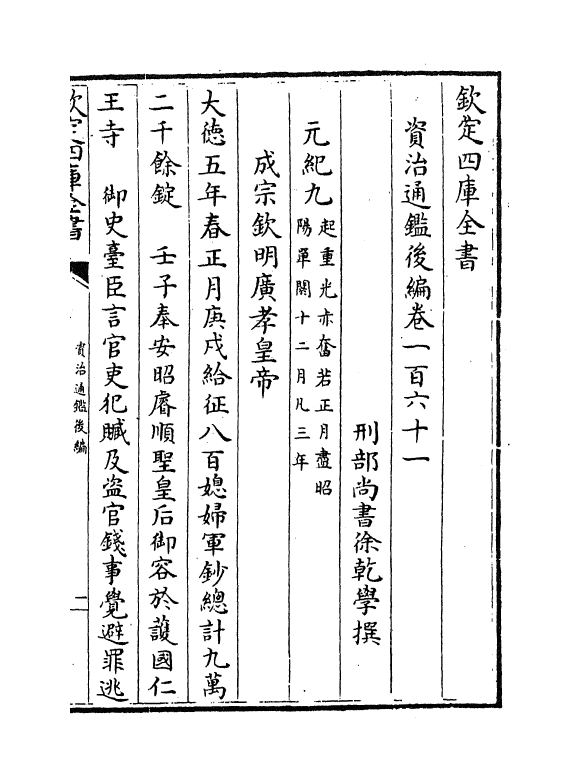 欽定四庫全書
資治通鑑後編卷一百六十一
刑部尚書徐乾學撰
元紀九起重光赤奮若正月盡昭
陽單閼十二月凡三年
成宗欽明廣孝皇帝
大德五年春正月庚戌給征八百媳婦軍鈔總計九萬
二千餘錠　壬子奉安昭睿順聖皇后御容於䕶國仁
王寺　御史臺臣言官吏犯贓及盗官錢事覺避罪逃
欽定四庫全書
資治通鑑後編
二